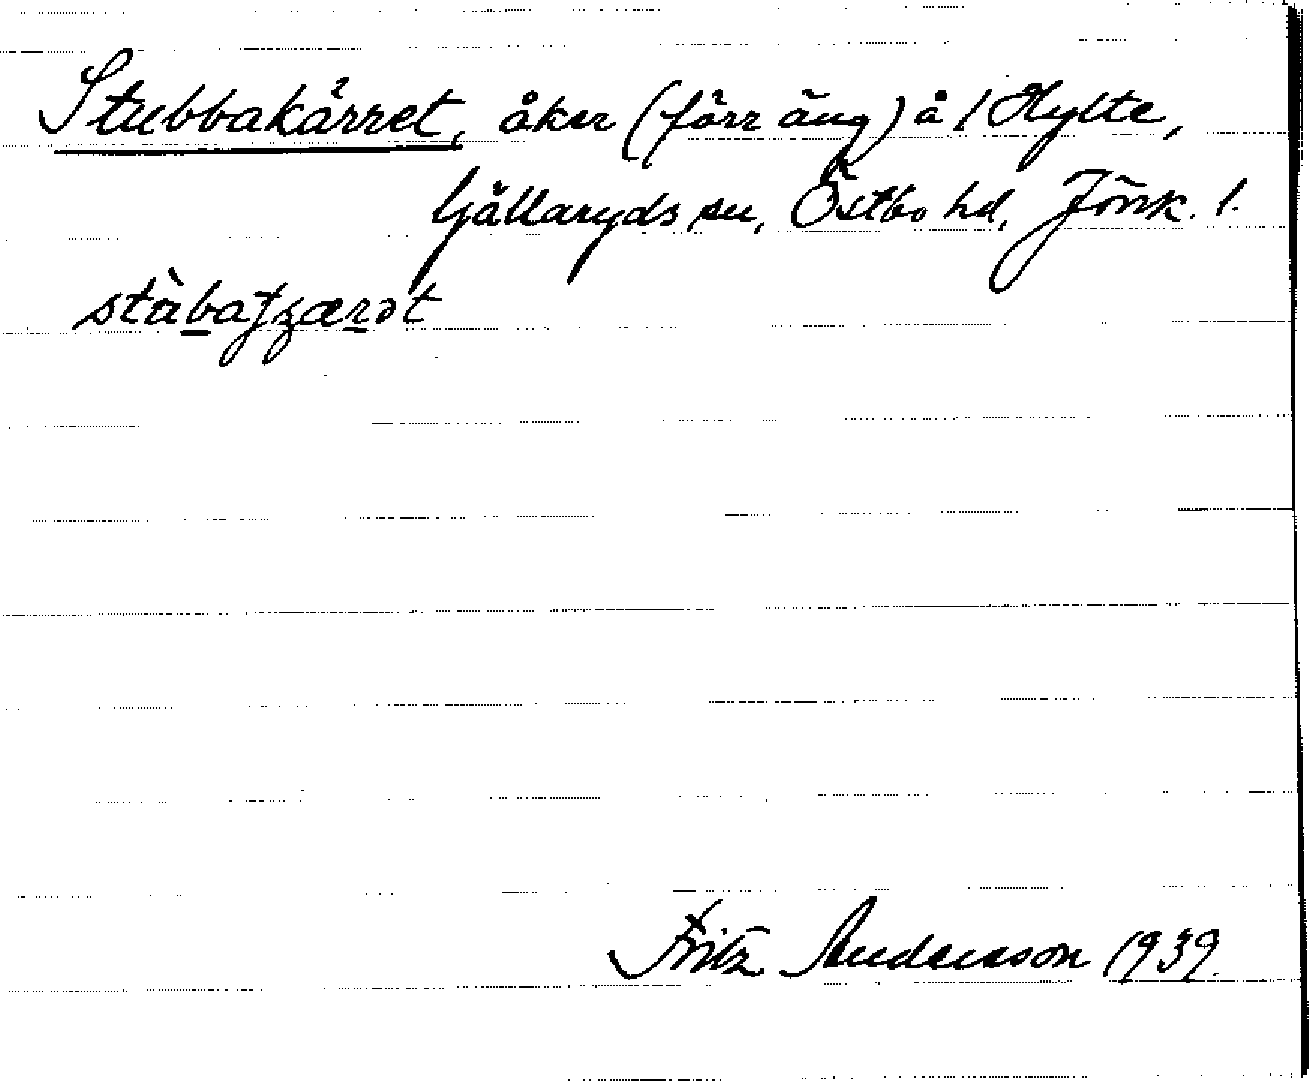 Stubbakärret, åker (förr äng) å / Hylte,
Gällaryds sn, Östbo hd, Jönk. l.
stàbaʃʒærət
Fritz Andersson 1939.